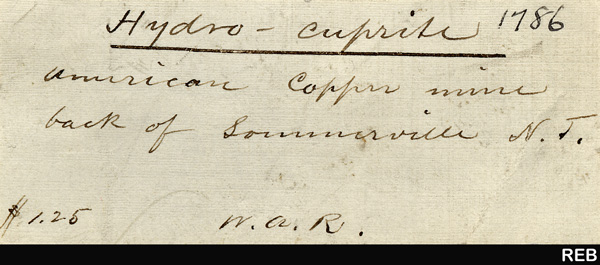 Hydro - cuprite 1786
american Copper mine
back of Sommerville N.J.
$1.25 W.A.R.
REB